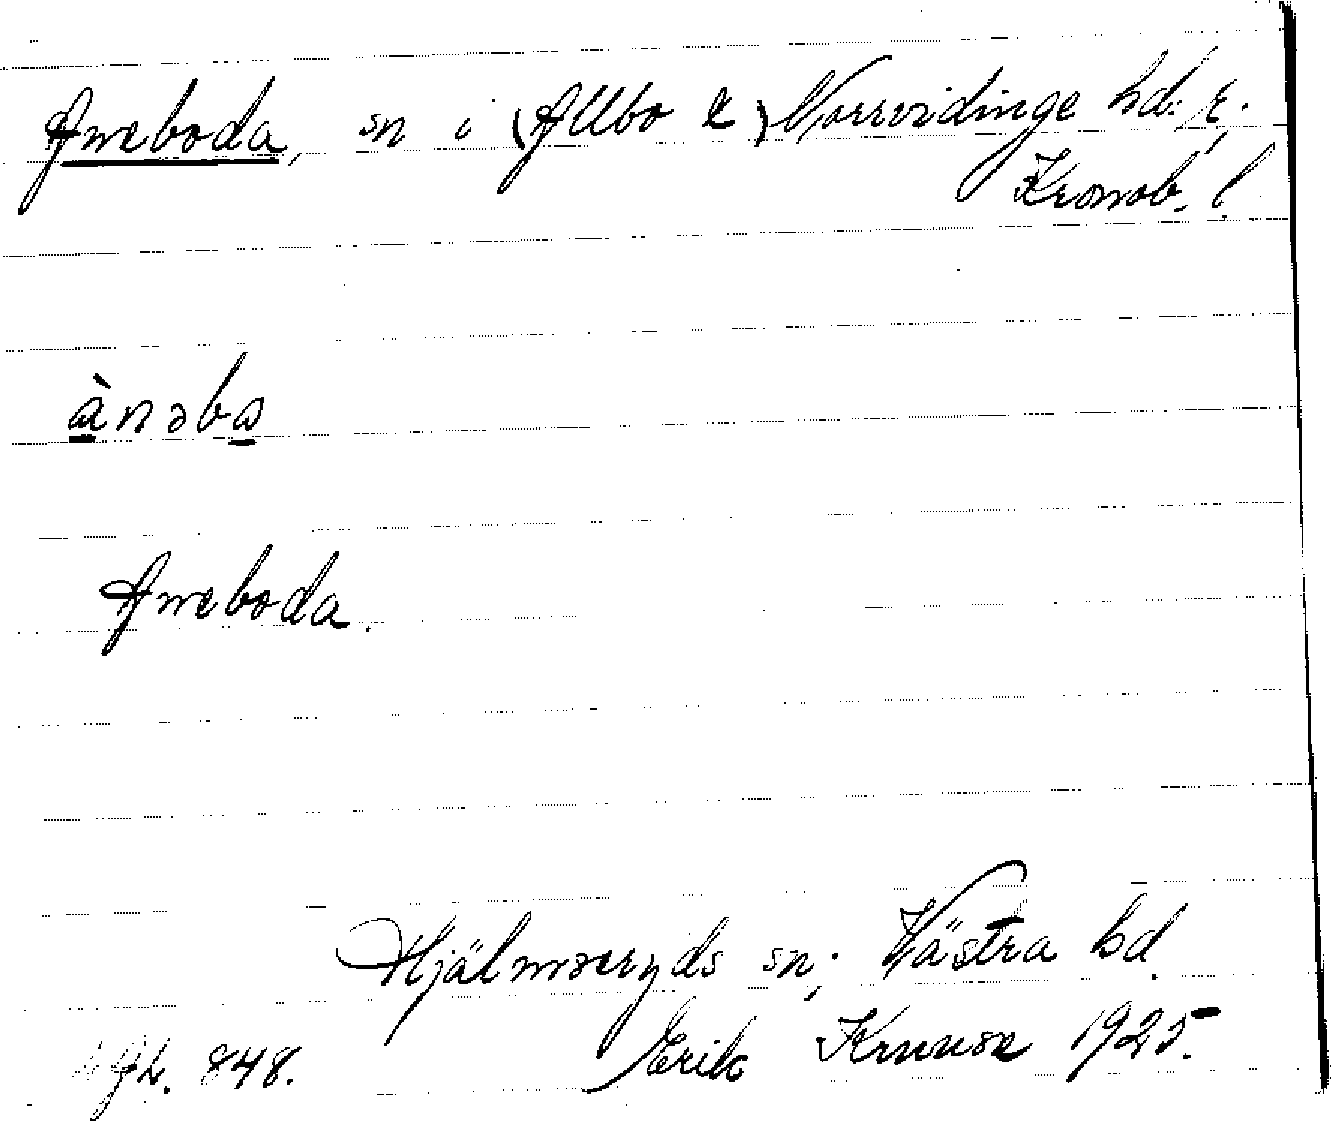 Aneboda, sn i (Allbo &) Norrvidinge hd:r,
Kronob. l.
ànəba
Aneboda.
Hjälmseryds sn; Västra hd.
848. Erik Knuse 1925.